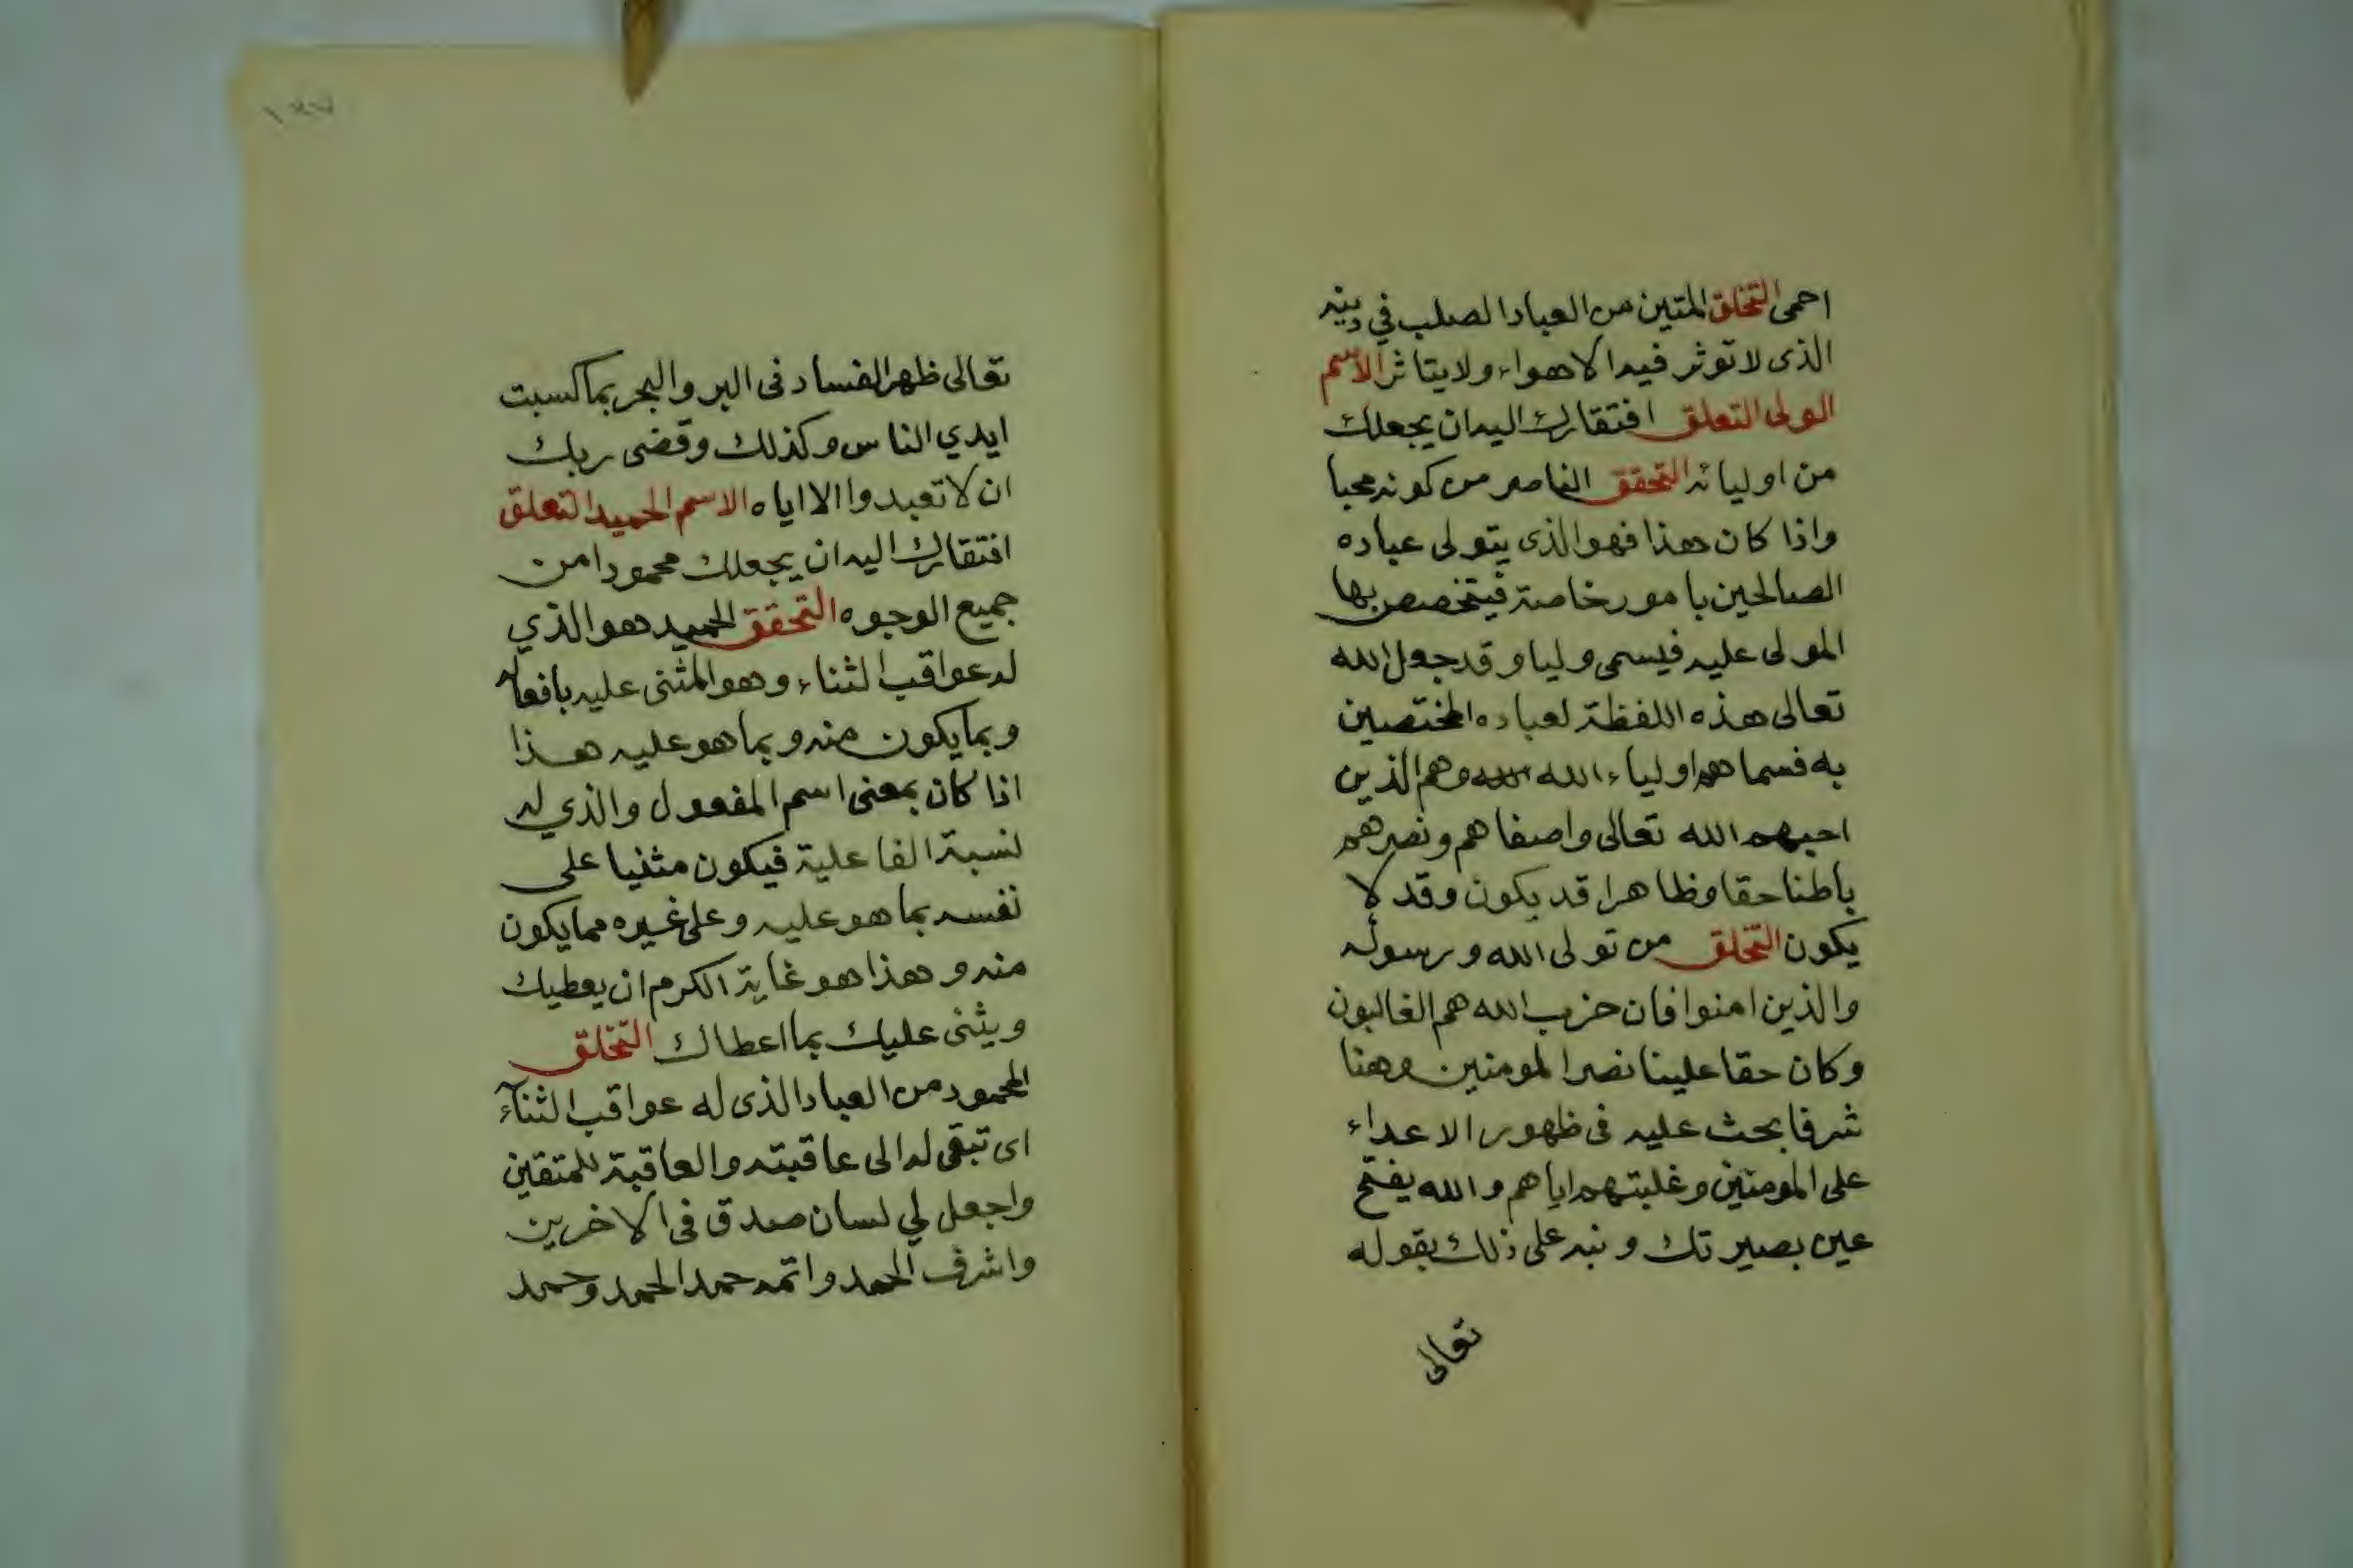 احمى التخلق المتين من العباد الصلب في دينه
الذى لا توثر فيه الاهواء ولا يتاثر الاسم
الولى التعلق افتقارك اليه ان يجعلك
من اوليائه التحقق الناصر من كونه محبا
واذا كان هذا فهو الذى يتولى عباده
الصالحين بامور خاصة فيتخصص بها
المولى عليه فيسمى وليا وقد جعل الله
تعالى هذه اللفظة لعباده المختصين
به فسماهم اولياء الله وهم الذين
احبهم الله تعالى واصفاهم ونصرهم
باطنا حقا وظاهرا قد يكون وقد لا
يكون التخلق من تولى الله ورسوله
والذين امنوا فان حزب الله هم الغالبون
وكان حقا علينا نصر المومنين وهنا
شرفا بحث عليه فى ظهور الاعداء
على المومنين وغلبتهم اياهم والله يفتح
عين بصيرتك ونبه على ذلك بقوله
تعالى
تعالى ظهر الفساد فى البر والبحر بما كسبت
ايدي الناس وكذلك وقضى ربك
ان لا تعبدوا الا اياه الاسم الحميد التعلق
افتقارك اليه ان يجعلك محمودا من
جميع الوجوه التحقق الحميد هو الذي
له عواقب الثناء وهو المثنى عليه بافعاله
وبما يكون منه وبما هو عليه هذا
اذا كان بمعنى اسم المفعول والذي له
نسبة الفاعلية فيكون مثنيا على
نفسه بما هو عليه وعلى غيره مما يكون
منه وهذا هو غاية الكرم ان يعطيك
ويثنى عليك بما اعطاك التخلق
المحمود من العباد الذى له عواقب الثناء
اى تبقى له الى عاقبته والعاقبة للمتقين
واجعل لي لسان صدق فى الاخرين
واشرف الحمد واتمه حمد الحمد وحمد